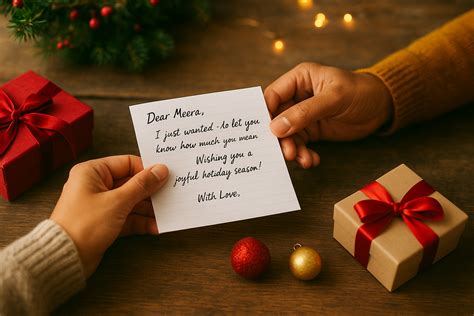 Dear Meera,
I just wanted -to let you
know how much you mean
Wishing you a
joyful holiday season!
With Love,